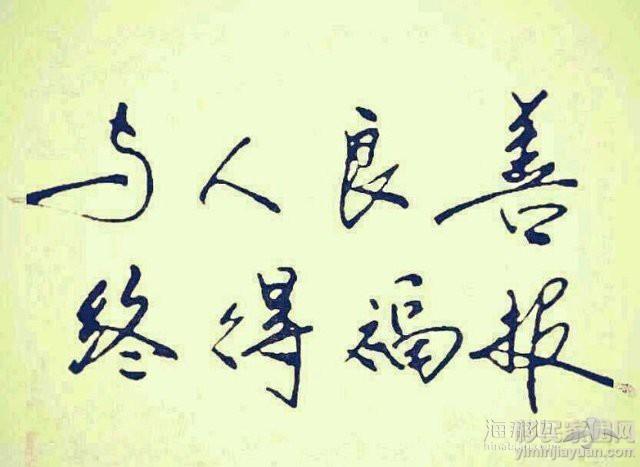 与人良善
终得福报
yiminjiayuan.com